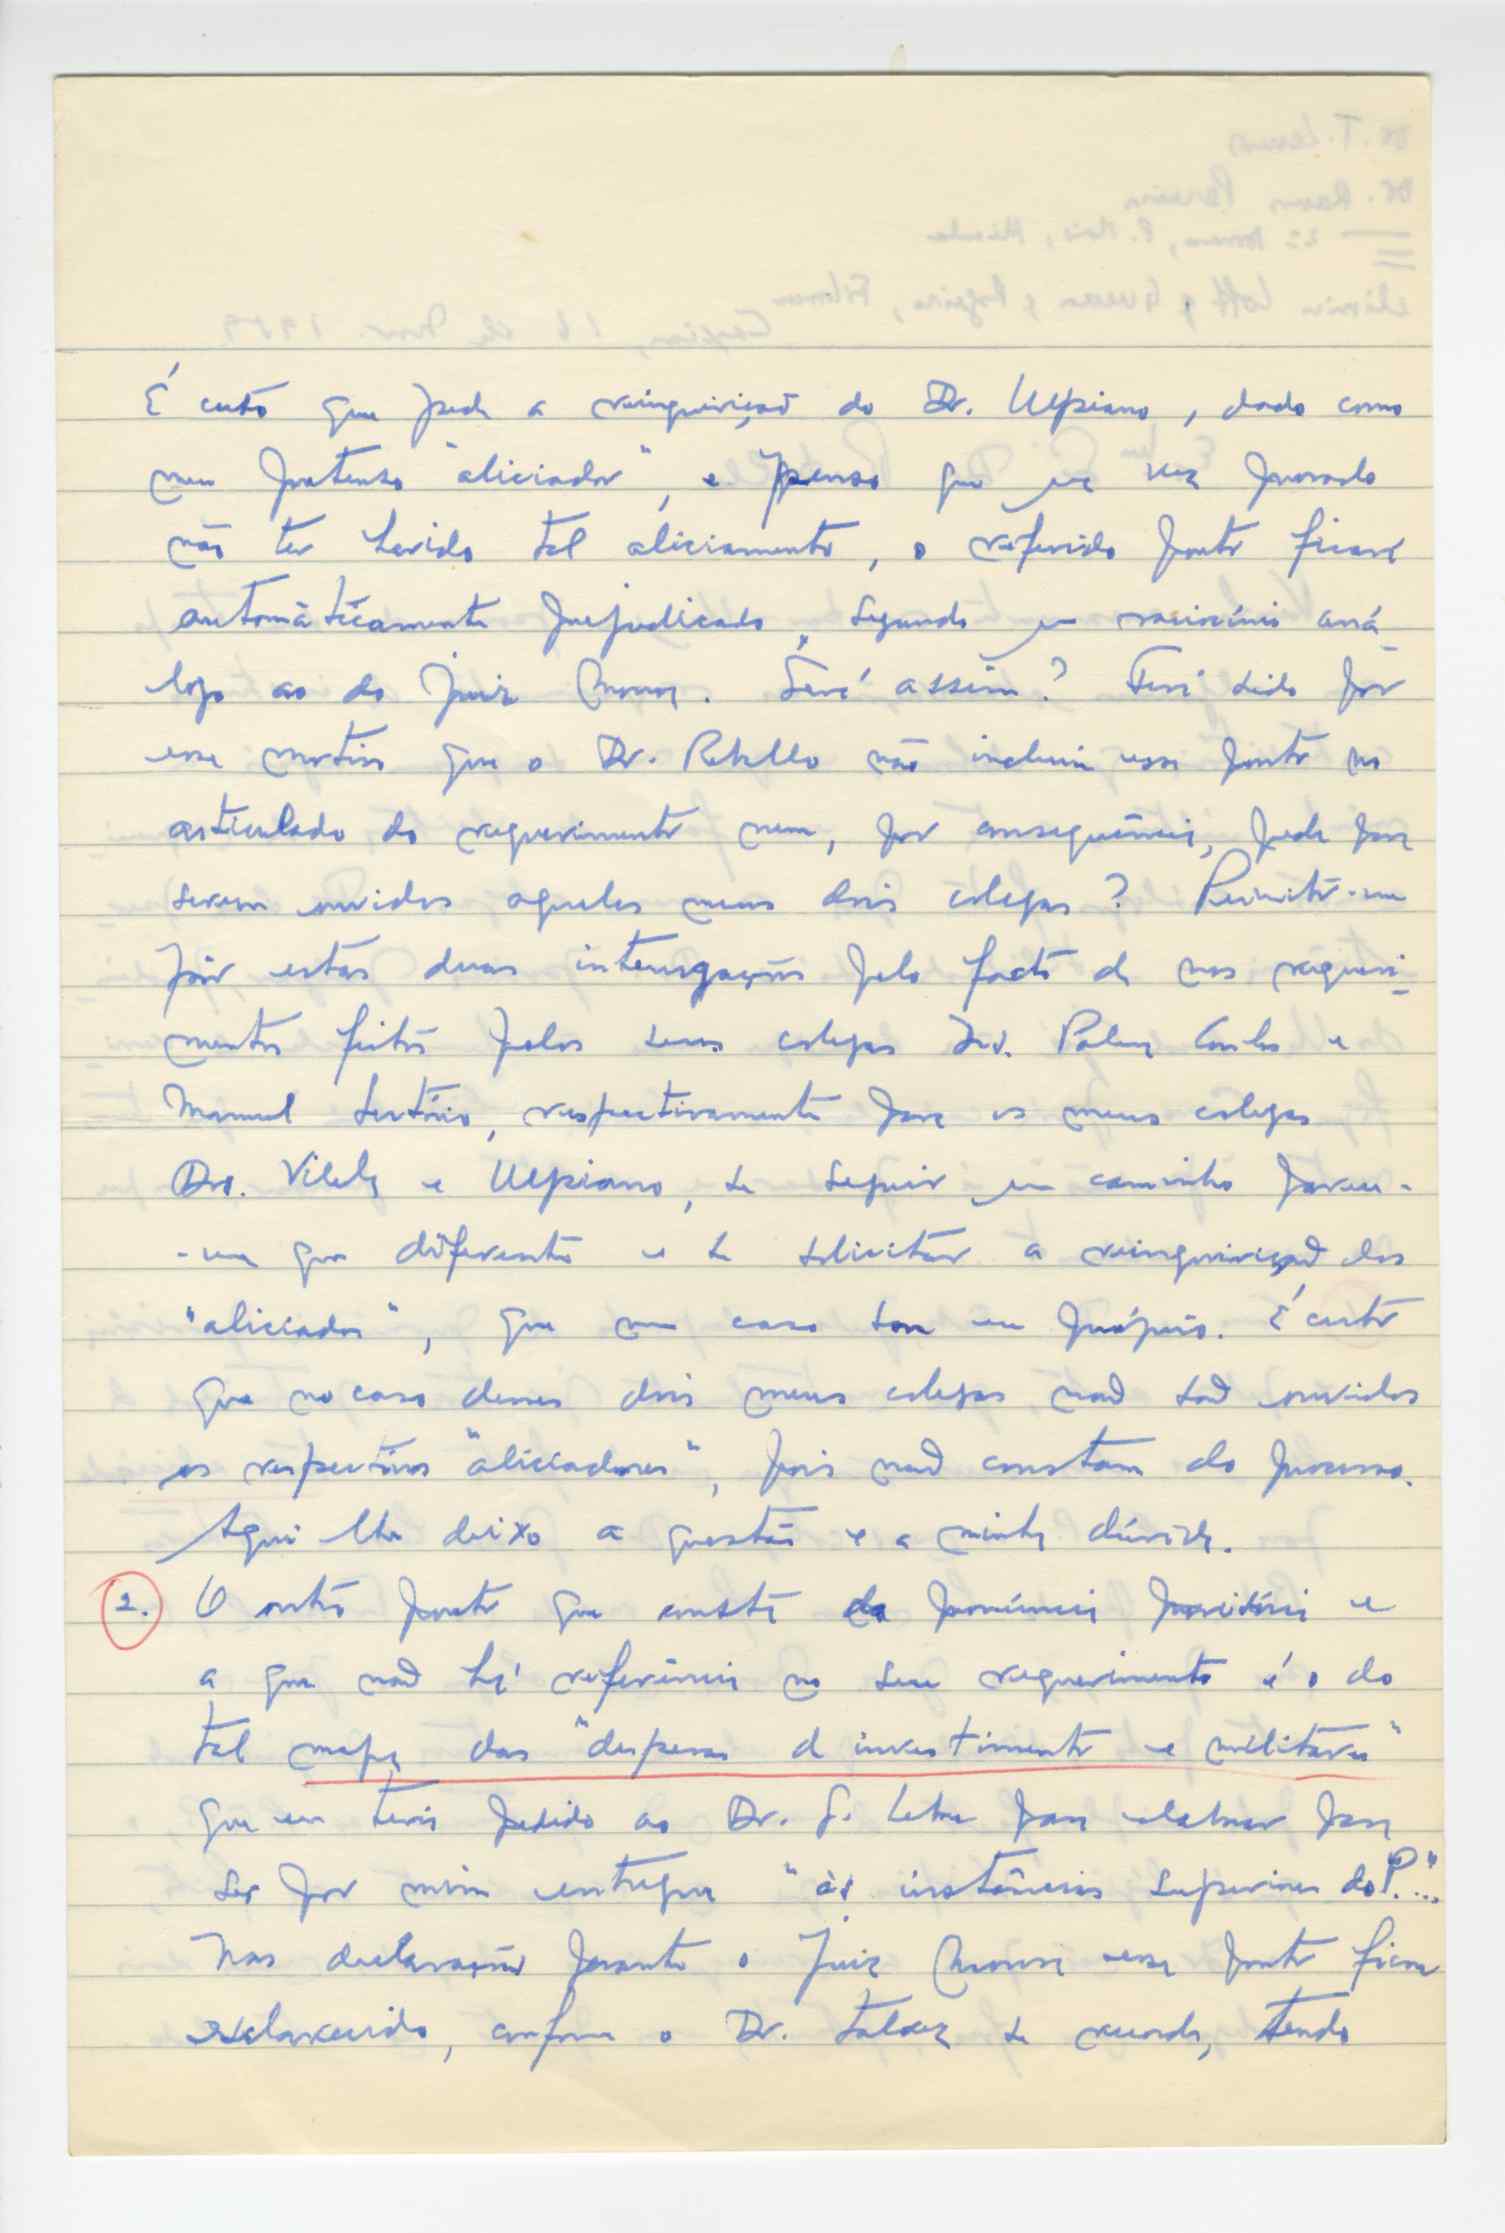 É certo que pede a reinquirição do Dr. Ulpiano, dado como
meu pretenso "aliciador", e penso que uma vez provado
não ter havido tal aliciamento, o referido ponto ficará
automàticamente prejudicado, segundo um raciocínio aná-
logo ao do Juiz. Será assim? Terá sido por
esse motivo que o Dr. Rebello não incluiu esse ponto no
articulado do requerimento nem, por consequência, pede para
serem ouvidos aqueles meus dois colegas? Permito-me
pôr estas duas interrogações pelo facto de nos requeri-
mentos feitos pelos seus colegas Drs. Palma Carlos e
Manuel Sertório, respectivamente para os meus colegas
Drs. Vilela e Ulpiano, se seguir um caminho parece-
-me que diferente e se solicitar a reinquirição dos
"aliciados", que no caso sou eu próprio. É certo
que no caso desses dois meus colegas não são ouvidos
os respectivos "aliciadores", pois não constam do processo.
Aqui lhe deixo a questão e a minha dúvida.
2. O outro ponto que consta da pronúncia provisória e
a que não há referência no seu requerimento é o do
tal mapa das "despesas de investimento e militares"
que eu teria pedido ao Dr. S. Lema para elaborar para
ser por mim entregue "às instâncias superiores do P."...
Nas declarações perante o Juiz esse ponto ficou
esclarecido, conforme o Dr. talvez se recorde, tendo